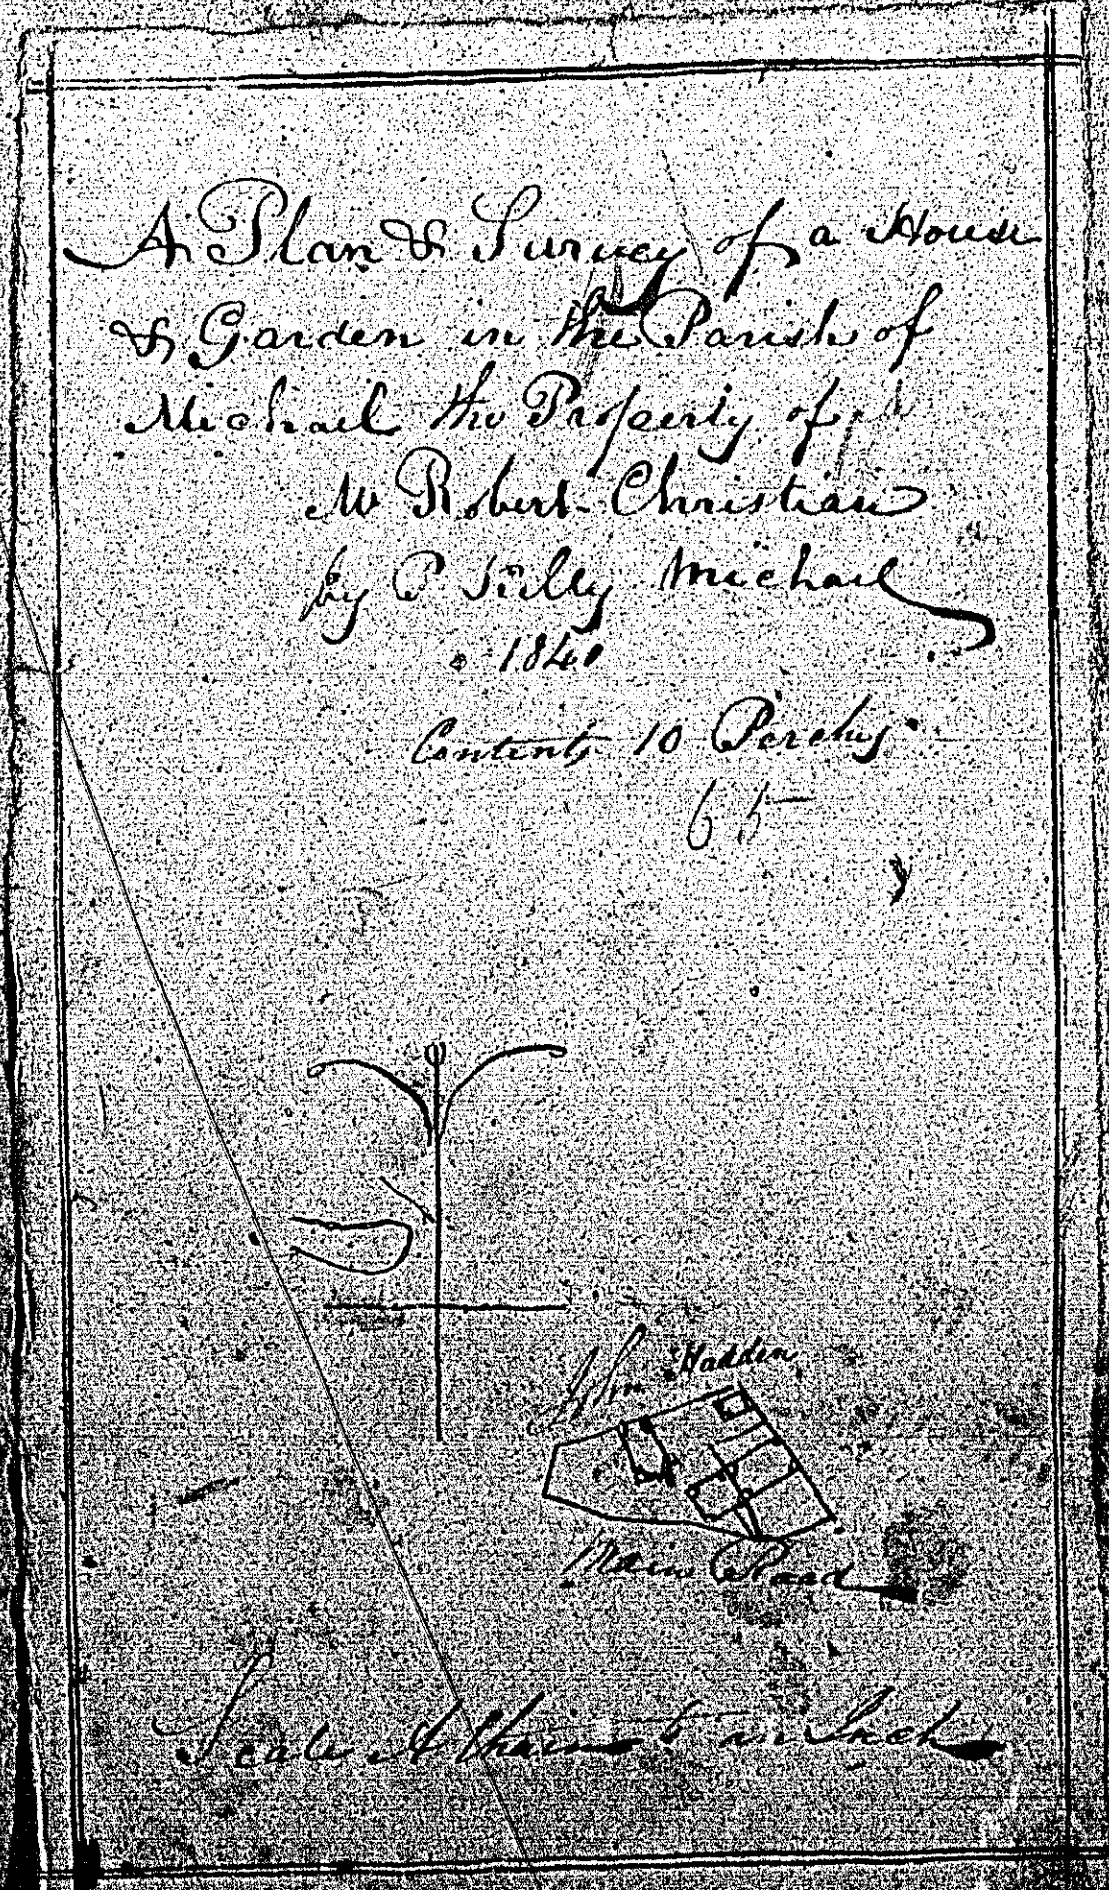 A Plan & Survey of a House
& Garden in the Parish of
Michael the Property of
Mr Robert Christian
by P Killy Michael
1840
Contents 10 Perches
65
Jhn Hadden
Main Road
Scale A Chain to an Inch